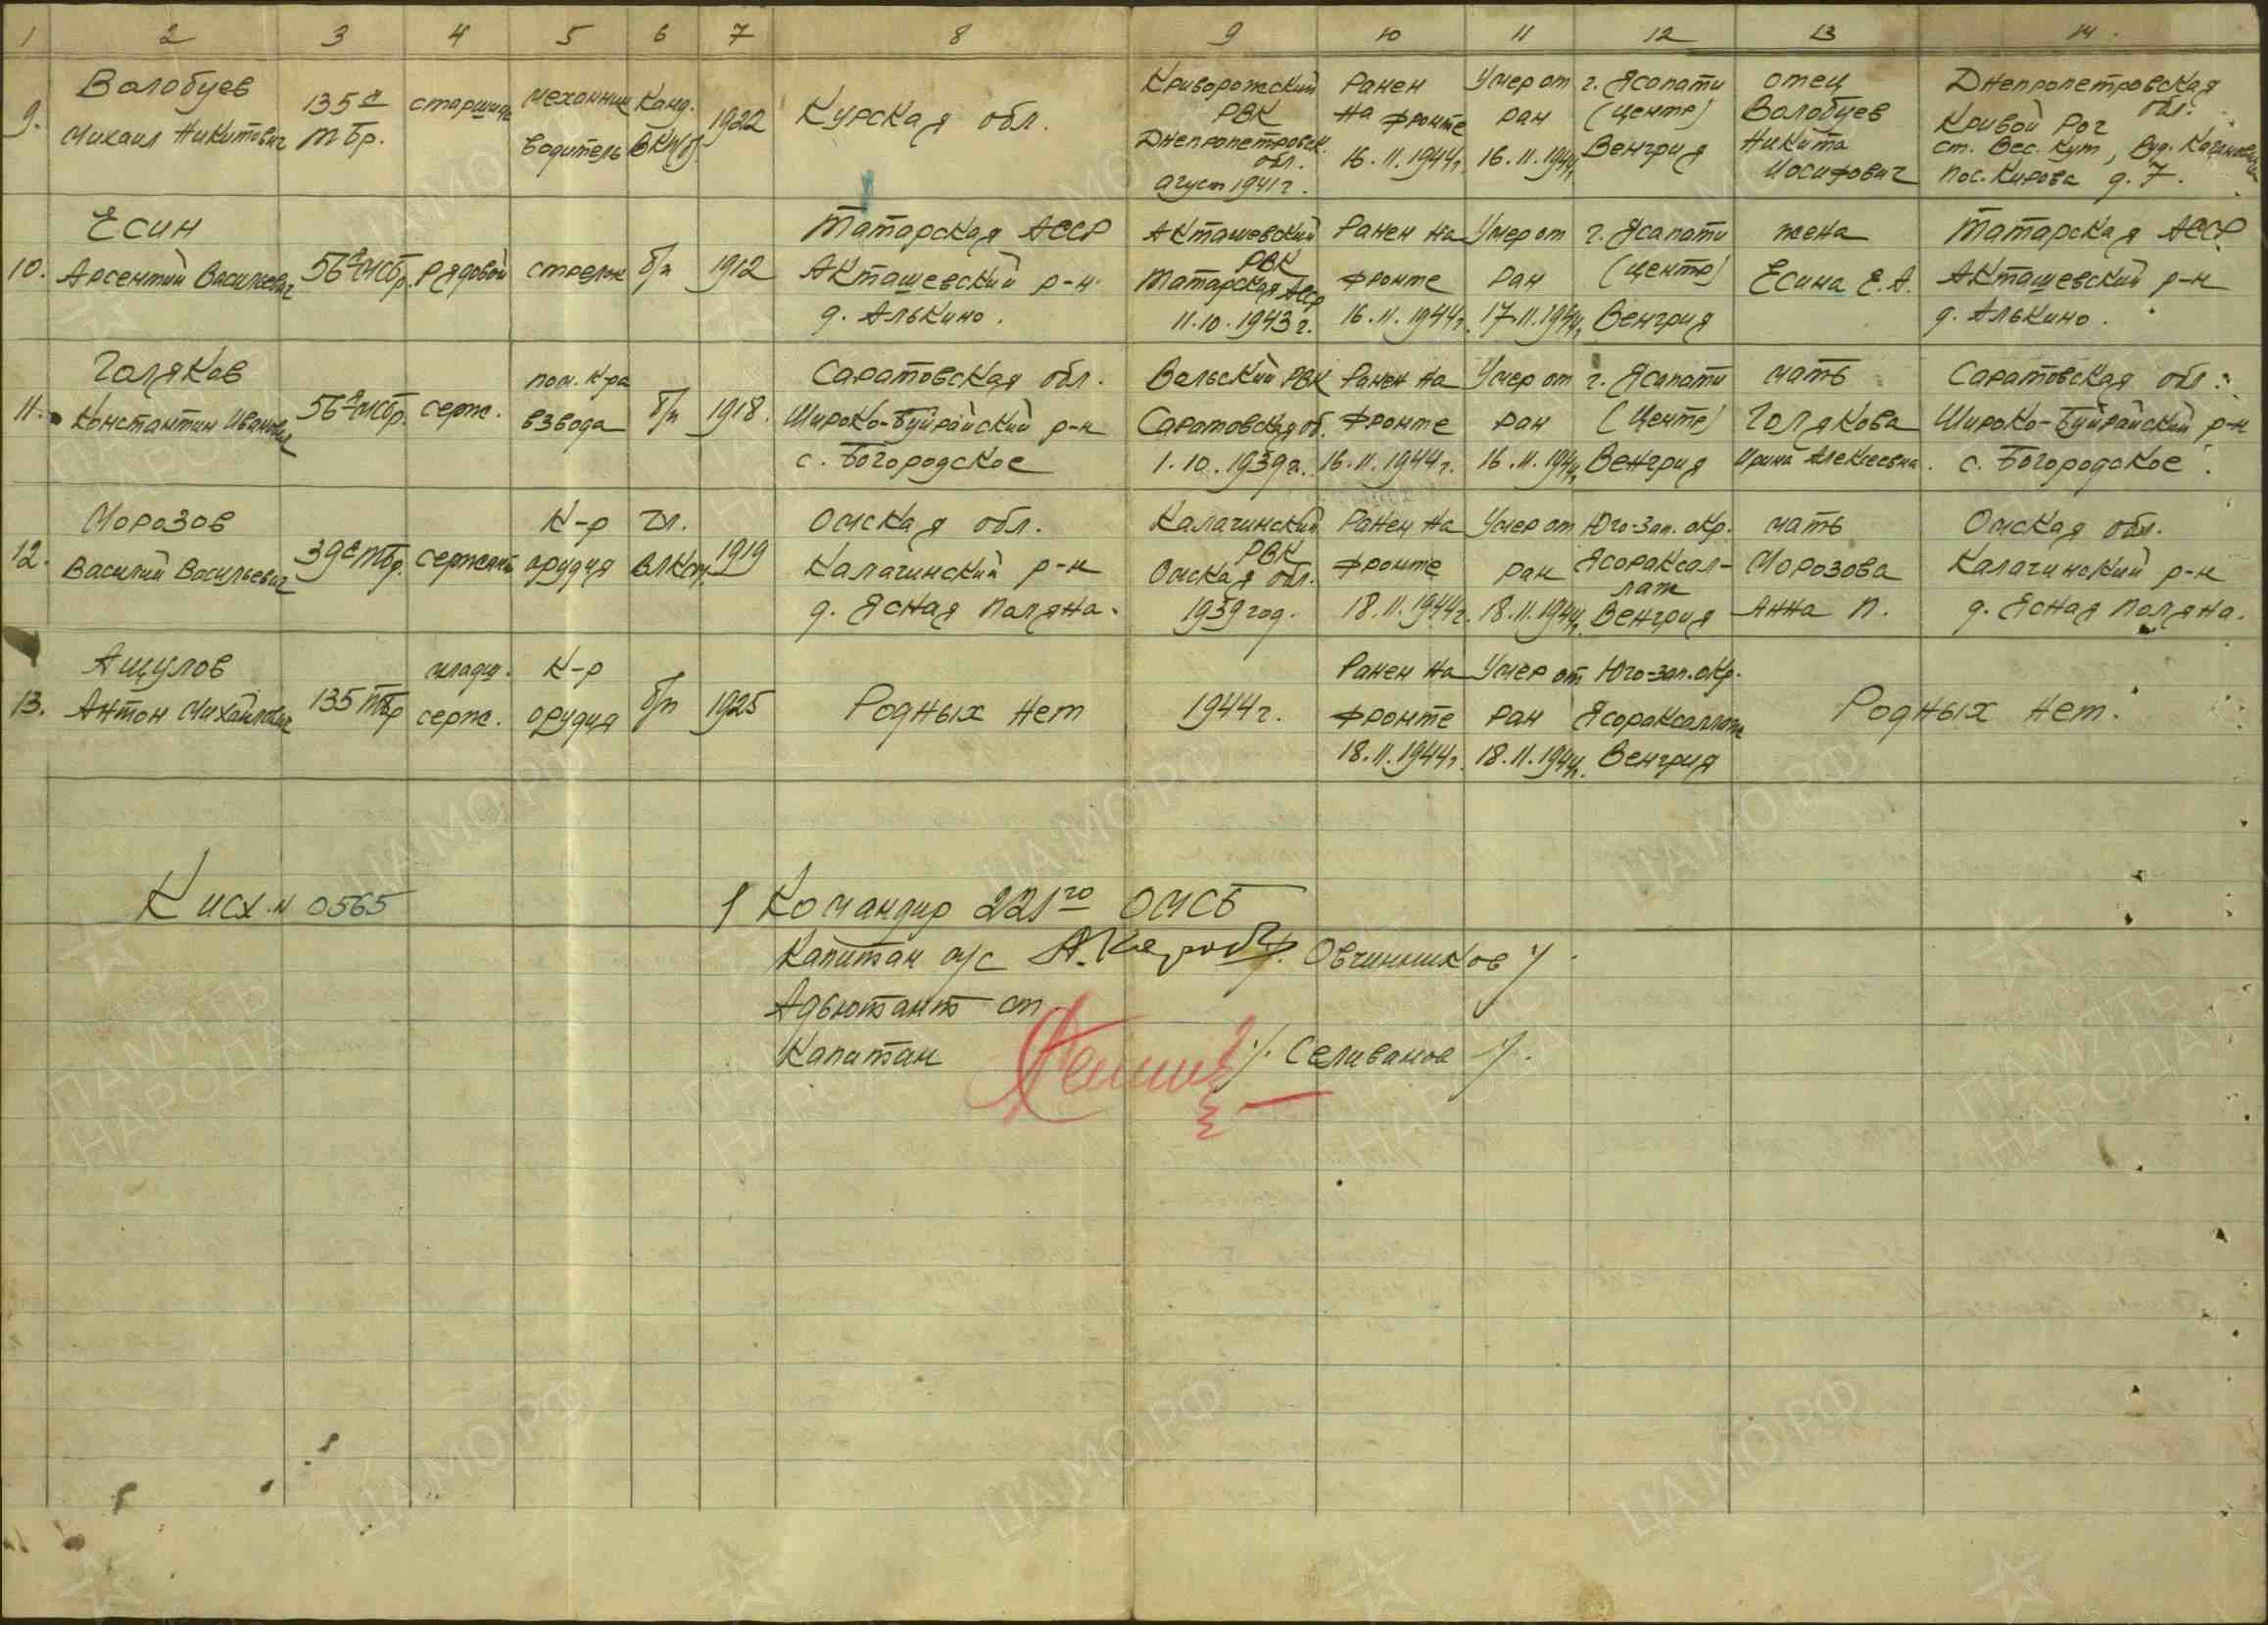 1 2 3 4 5 6 7 8 9 10 11 12 13 14
9.
Валобуев
Михаил Никитович
135 я
тбр.
старшина
механик
водитель
Канд.
ВКП(б)
1922
Курская обл.
Криворожский
РВК
Днепропетровск.
обл.
Август 1941 г.
Ранен
на фронте
16.11.1944г.
Умер от
ран
16.11.1944г.
г. Ясапати
(центр)
Венгрия
отец
Валобуев
Никита
Иосифович
Днепропетровская
обл.
Кривой Рог
ст. Вес. Кут, Руд. Кагановича
пос. Кирова д. 7.
10.
Есин
Арсентий Васильевич
56 я мсбр.
рядовой
стрелок
б/п
1912
Татарская АССР
Акташевский р-н
д. Алькино.
Акташевский
РВК
Татарская АССР
11.10.1943 г.
Ранен на
фронте
16.11.1944г.
Умер от
ран
17.11.1944г.
г. Ясапати
(центр)
Венгрия
жена
Есина Е. А.
Татарская АССР
Акташевский р-н
д. Алькино.
11.
Голяков
Константин Иванович
56 я мсбр.
серж.
пом. к-ра
взвода
б/п
1918.
Саратовская обл.
Широко-Буйрайский р-н
с. Богородское
Вольский РВК
Саратовская об.
1.10.1939 г.
Ранен на
фронте
16.11.1944г.
Умер от
ран
16.11.1944г.
г. Ясапати
(центр)
Венгрия
мать
Голякова
Ирина Алексеевна.
Саратовская обл.
Широко-Буйрайский р-н
с. Богородское.
12.
Морозов
Василий Васильевич
39 я тбр.
сержант
К-р
орудия
Чл.
ВЛКСМ
1919
Омская обл.
Калачинский р-н
д. Ясная Поляна.
Калачинский
РВК
Омская обл.
1939 год.
Ранен на
фронте
18.11.1944г.
Умер от
ран
18.11.1944г.
Юго-Зап. окр.
Ясораксал-
лаш
Венгрия
мать
Морозова
Анна П.
Омская обл.
Калачинский р-н
д. Ясная Поляна.
13.
Ащулов
Антон Михайлович
135 тбр
младш.
серж.
К-р
орудия
б/п
1925
Родных нет
1944 г.
Ранен на
фронте
18.11.1944г.
Умер от
ран
18.11.1944г.
Юго-зап. окр.
Ясораксаллаш
Венгрия
Родных нет.
К исх. н 0565
Командир 221го ОМСБ
Капитан м/с Овчинников /
Адъютант ст
Капитан /. Селиванов /.
ЦАМО РФ
ПАМЯТЬ
НАРОДА